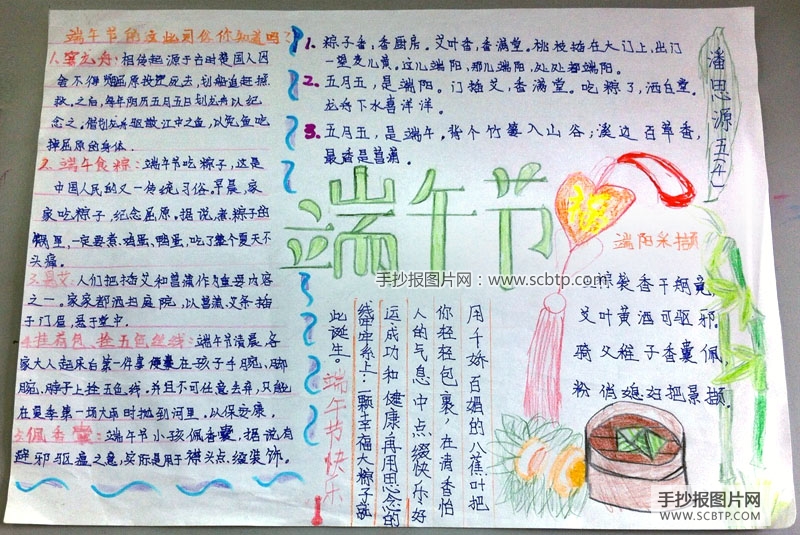 端午节的这些习俗你知道吗?
1.赛龙舟:相传起源于古时楚国人因
舍不得贤臣屈原投江死去,划船追赶拯
救。之后,每年阴历五月五日划龙舟以纪
念之。借划龙舟驱散江中之鱼,以免鱼吃
掉屈原的身体。
2.端午食粽:端午节吃粽子,这是
中国人民的又一传统习俗。早晨,家
家吃粽子,纪念屈原。据说,煮粽子的
锅里,一定要煮鸡蛋,鸭蛋,吃了整个夏天不
头痛。
3.悬艾:人们把插艾和菖蒲作为重要内容
之一。家家都洒扫庭院,以菖蒲、艾条插
于门眉,悬于堂中。
4.挂荷包、拴五色丝线:端午节清晨,各
家大人起床后第一件事便是在孩子手腕,脚
腕,脖子上拴五色线,并且不可任意去弃,只能
在夏季第一场大雨时抛到河里,以保安康,
5.佩香囊:端午节小孩佩香囊,据说有
避邪驱瘟之意,实际是用于襟头点缀装饰。
1.粽子香,香厨房。艾叶香,香满堂。桃枝插在大门上,出门
一望麦儿黄。这儿端阳,那儿端阳,处处都端阳。
2.五月五,是端阳。门插艾,香满堂。吃粽子,洒白堂。
龙舟下水喜洋洋。
3.五月五,是端午。背个竹篓入山谷;溪边百草香,
最香是菖蒲。
潘思源五(4)
端午节
端阳采撷
手抄报图片网:www.scbtp.com
粽香
艾叶黄酒可驱邪。
骑父稚子香囊佩,
粉俏媳妇把景撷。
用千娇百媚的八蕉叶把
你轻轻包裹,在清香怡
人的气息中点缀快乐,好
运,成功和健康,再用思念的
线牢牢系上:一颗幸福大粽子就
此诞生。
端午节快乐!
手抄报图片网
WWW.SCBTP.COM